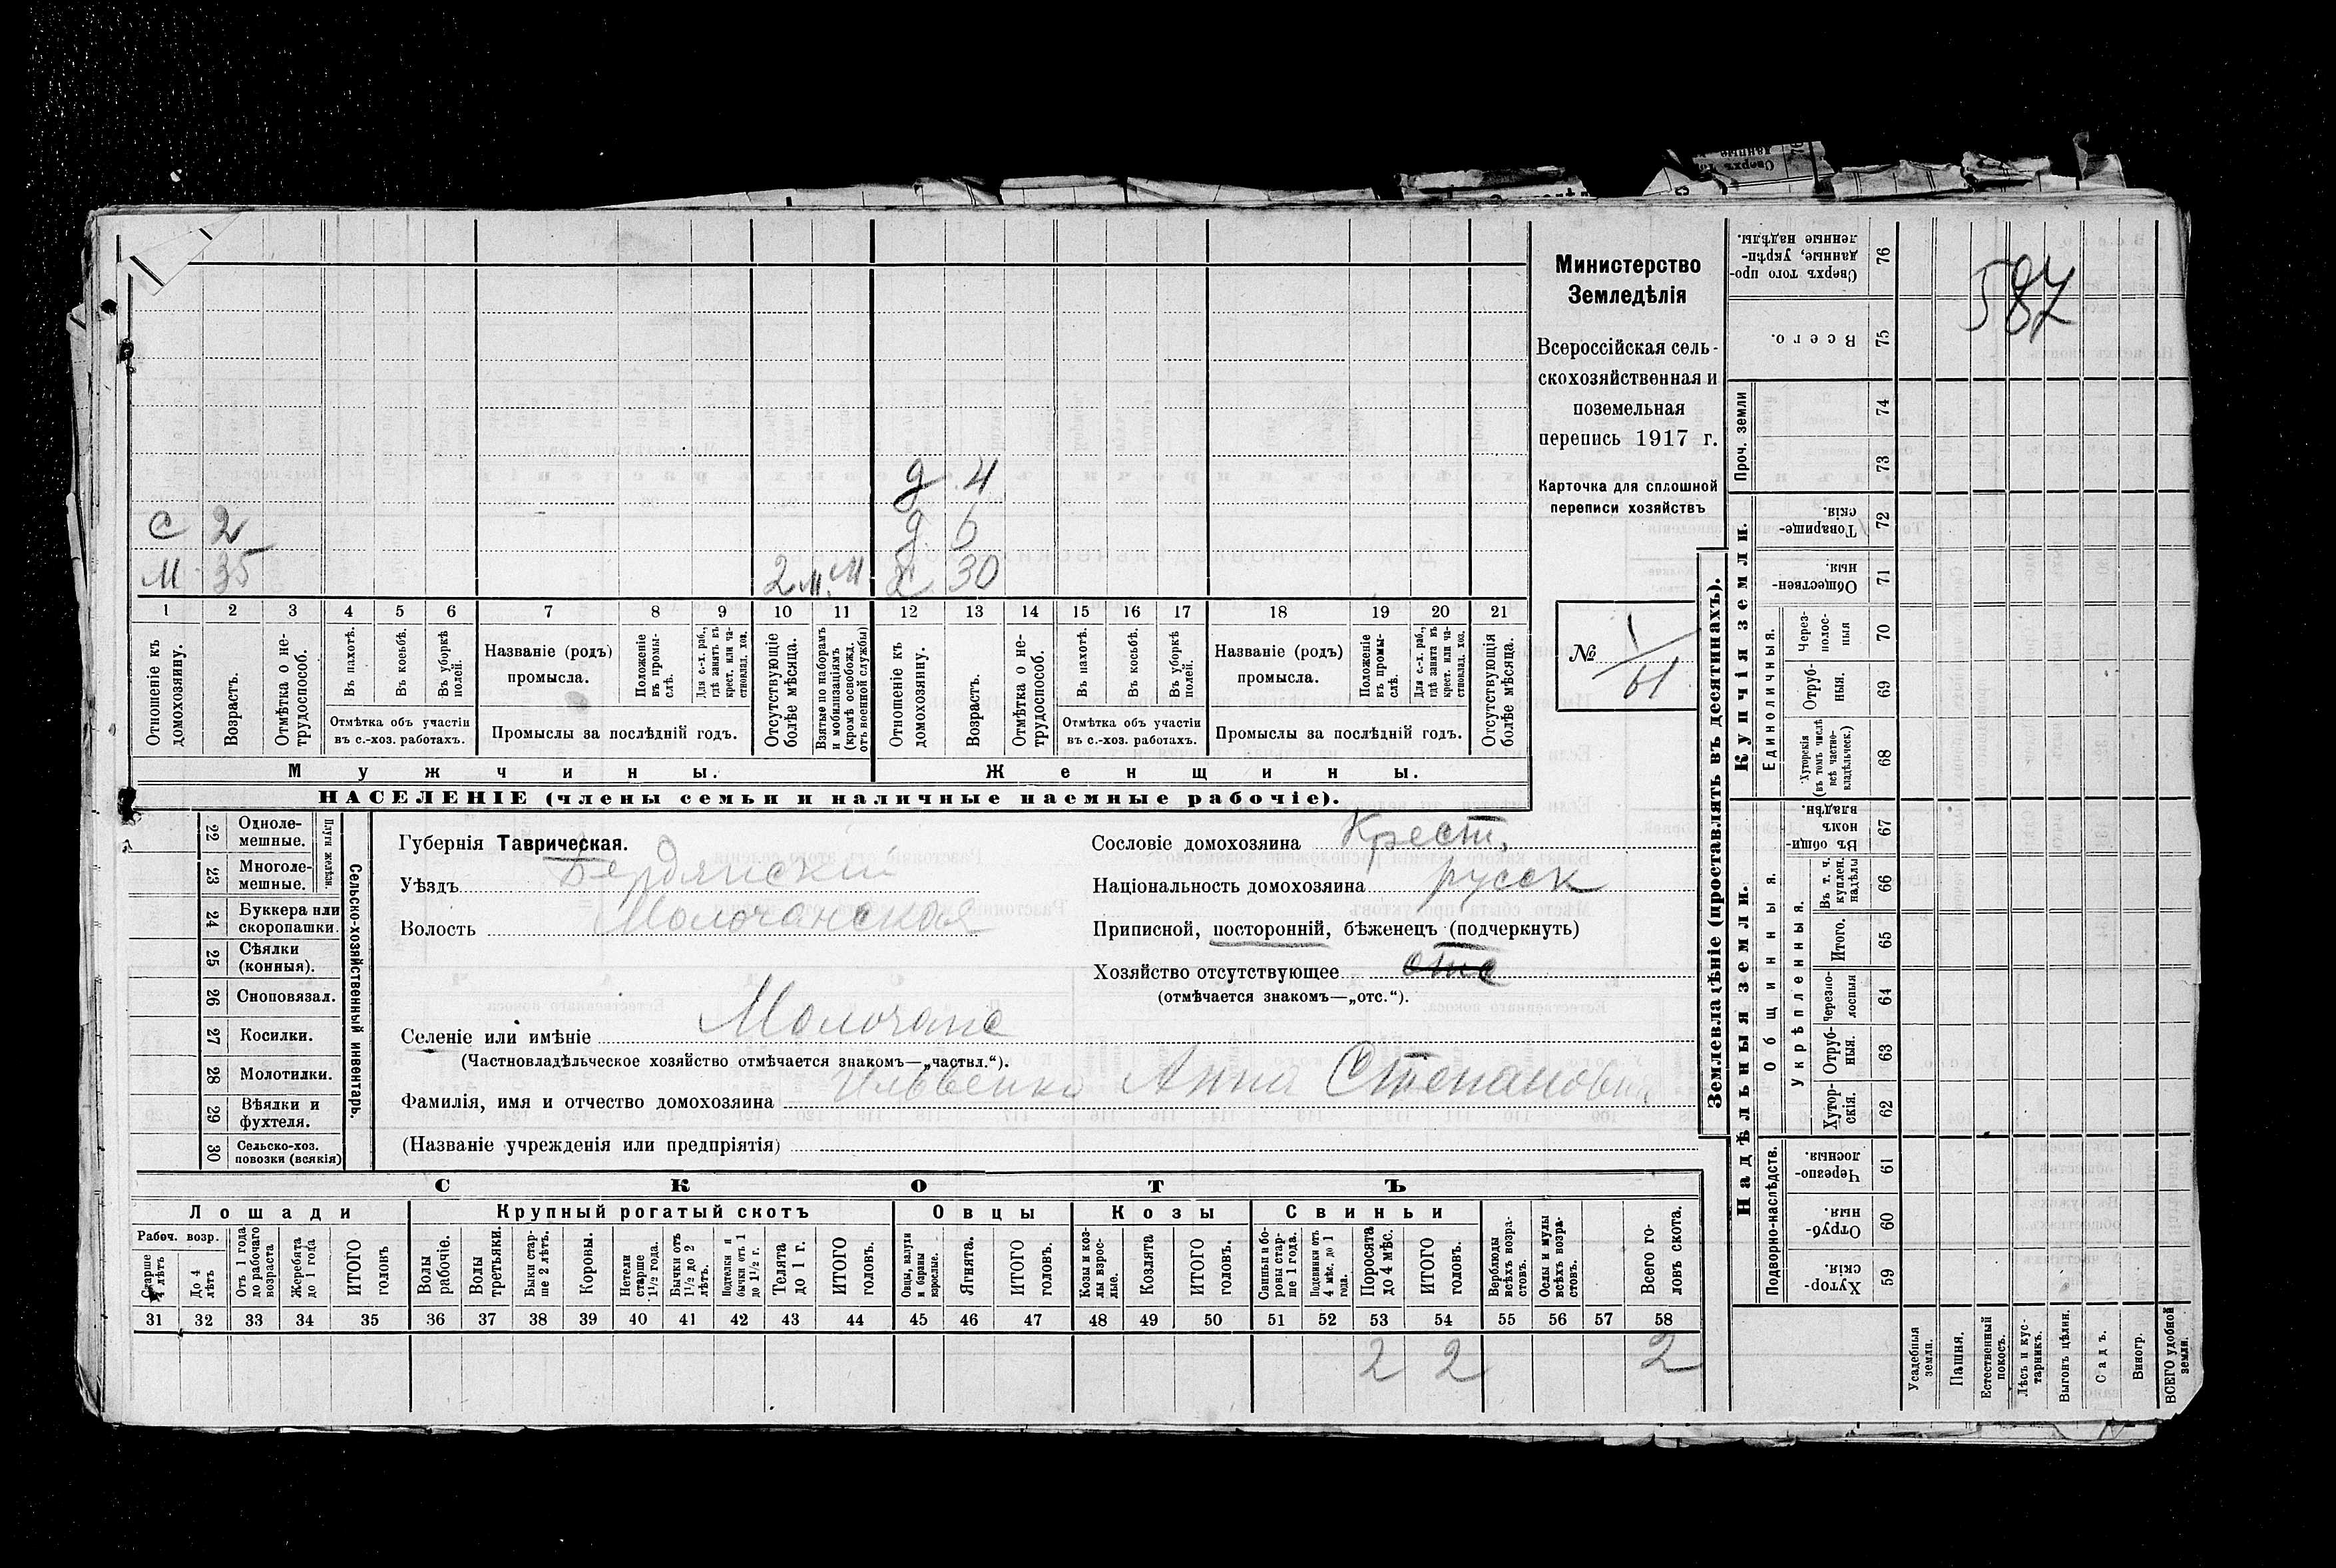 587
Министерство
Земледѣлія
Всероссійская сель-
скохозяйственная и
поземельная
перепись 1917 г.
Карточка для сплошной
переписи хозяйствъ
№ 1/61
д 4
с 2
д 6
м 35 2 м. м х 30
1 2 3 4 5 6 7 8 9 10 11 12 13 14 15 16 17 18 19 20 21
Отношеніе къ домохозяину.
Возрастъ.
Отмѣтка о не-трудоспособ.
Въ пахотѣ.
Въ косьбѣ.
Въ уборкѣ полей.
Отмѣтка объ участіи
въ с.-хоз. работахъ.
Названіе (родъ)
промысла.
Положеніе въ промы-слѣ.
Для с.-х. раб., гдѣ занятъ въ крест. или ча-стновлад. хоз.
Промыслы за послѣдній годъ.
Отсутствующіе болѣе мѣсяца.
Взятые по наборамъ и мобилизаціямъ (кромѣ освобожд. отъ военной службы)
Отношеніе къ домохозяину.
Возрастъ.
Отмѣтка о не-трудоспособ.
Въ пахотѣ.
Въ косьбѣ.
Въ уборкѣ полей.
Отмѣтка объ участіи
въ с.-хоз. работахъ.
Названіе (родъ)
промысла.
Положеніе въ промы-слѣ.
Для с.-х. раб., гдѣ занята въ крест. или ча-стновлад. хоз.
Промыслы за послѣдній годъ.
Отсутствующія болѣе мѣсяца.
Мужчины. Женщины.
НАСЕЛЕНІЕ (члены семьи и наличные наемные рабочіе).
Сельско-хозяйственный инвентарь.
Плуги желѣзн.
22 Однолемешные.
23 Многолемешные.
24 Буккера или скоропашки.
25 Сѣялки (конныя).
26 Сноповязал.
27 Косилки.
28 Молотилки.
29 Вѣялки и фухтеля.
30 Сельско-хоз. повозки (всякія)
Губернія Таврическая.
Уѣздъ Бердянскій
Волость Молочанская
Сословіе домохозяина Крест,
Національность домохозяина русск
Приписной, посторонній, бѣженецъ (подчеркнуть)
Хозяйство отсутствующее отс
(отмѣчается знакомъ—„отс.“).
Селеніе или имѣніе Молочанс
(Частновладѣльческое хозяйство отмѣчается знакомъ—„частвл.“).
Фамилія, имя и отчество домохозяина Анна Степановна
(Названіе учрежденія или предпріятія)
СКОТЪ
Лошади Крупный рогатый скотъ Овцы Козы Свиньи
Рабоч. возр.
Старше 4 лѣтъ
До 4 лѣтъ
Отъ 1 года до рабочаго возраста
Жеребята до 1 года
ИТОГО головъ
Волы рабочіе.
Волы третьяки.
Быки стар-ше 2 лѣтъ.
Коровы.
Нетели старше 1½ года.
Бычки отъ 1½ до 2 лѣтъ.
Подтелки и бычки отъ 1 до 1½ г.
Телята до 1 г.
ИТОГО головъ.
Овцы, валухи и бараны взрослые.
Ягнята.
ИТОГО головъ.
Козы и коз-лы взрос-лые.
Козлята
ИТОГО головъ.
Свиньи и бо-ровы стар-ше 1 года.
Подсвинки отъ 4 мѣс. до 1 года.
Поросята до 4 мѣс.
ИТОГО головъ.
Верблюды всѣхъ возра-стовъ.
Ослы и мулы всѣхъ возра-стовъ.
Всего го-ловъ скота.
31 32 33 34 35 36 37 38 39 40 41 42 43 44 45 46 47 48 49 50 51 52 53 54 55 56 57 58
2 2 2
Землевладѣніе (проставлять въ десятинахъ).
Надѣльныя земли. Купчія земли.
Подворно-наслѣдств.
Общинныя.
Укрѣпленныя.
Единоличныя.
Проч. земли
76 Сверхъ того про-данные, укрѣп-ленные надѣлы.
75 Всего.
74
73
72 Товарище-скія.
71 Обществен-ныя.
70 Через-полос-ныя
69 Отруб-ныя.
68 Хуторскія (въ томъ числѣ всѣ частно-владѣльческ.)
67 Въ общи-номъ владѣн.
66 Въ т. ч. куплен. надѣлы
65 Итого.
64 Черезпо-лосныя
63 Отруб-ныя.
62 Хутор-скія.
61 Черезпо-лосныя.
60 Отруб-ныя.
59 Хутор-скія.
Усадебныя земли.
Пашня.
Естественный покосъ.
Лѣсъ и кус-тарникъ.
Выгонъ цѣлин.
Садъ.
Виногр.
ВСЕГО удобной земли.